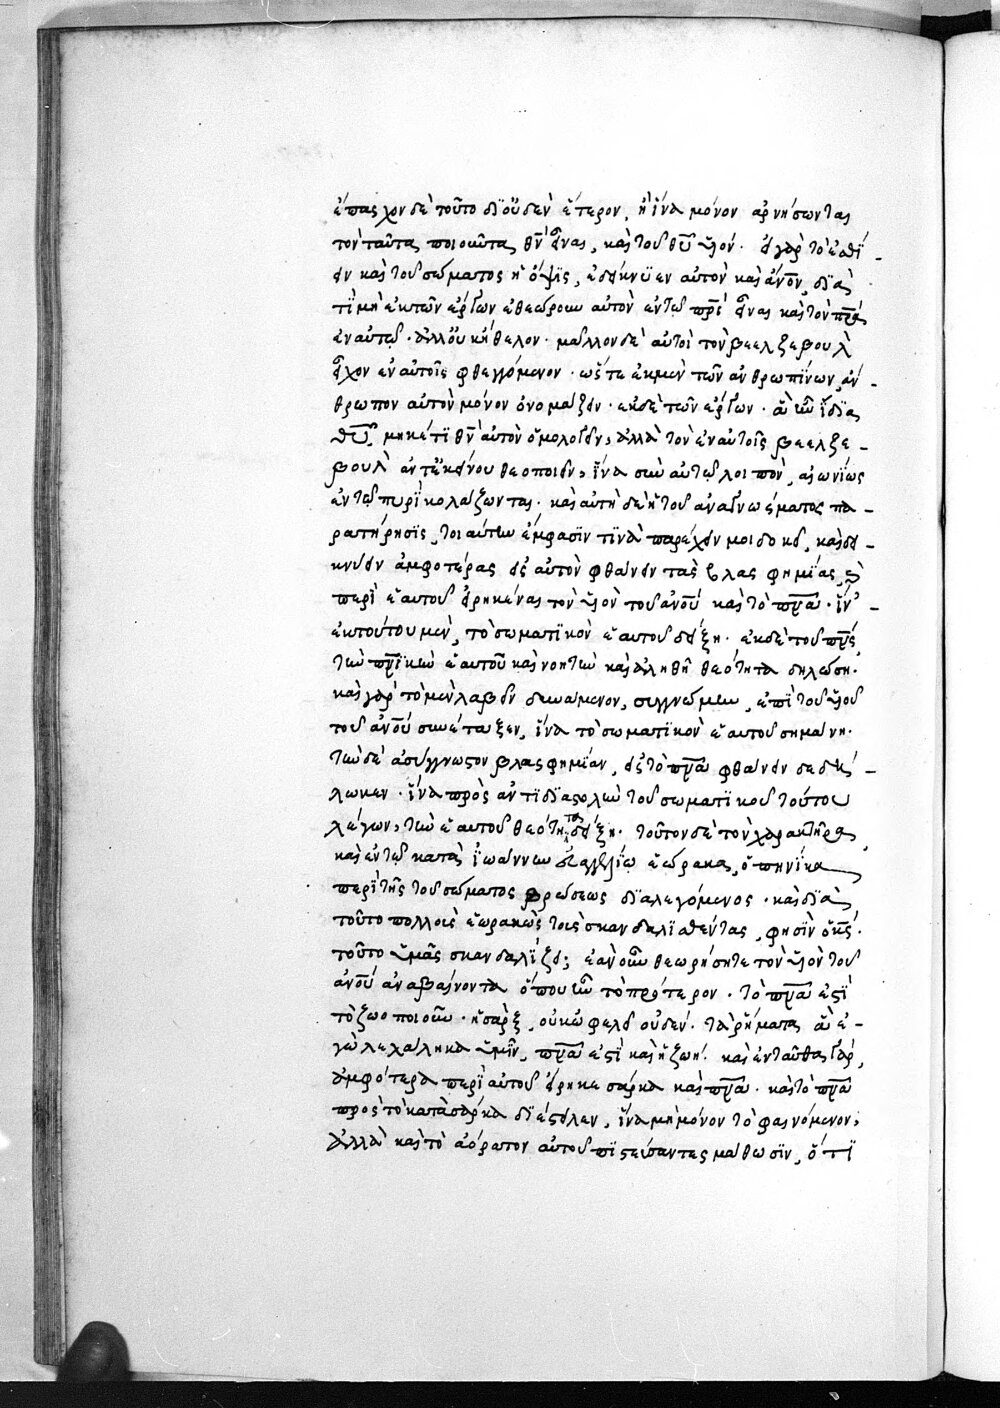 ἔπασχον δὲ τοῦτο δι' οὐδὲν ἕτερον, ἢ ἵνα μόνον ἀρνήσωνται
τὸν ταῦτα ποιοῦντα θν̄ εἶναι, καὶ τοῦ θῡ υἱόν. εἰ γὰρ τὸ ἐσθί-
ειν καὶ τοῦ σώματος ἡ ὄψις, ἐδείκνυεν αὐτὸν καὶ ἄνο̄ν, διὰ
τί μὴ ἐκ τῶν ἔργων ἐθεώρουν αὐτὸν ἐν τῷ πρ̄ὶ εἶναι καὶ τὸν πρ̄α
ἐν αὐτῷ. ἀλλ' οὐκ ἤθελον. μᾶλλον δὲ αὐτοὶ τὸν βεελζεβοὺλ
εἶχον ἐν αὐτοῖς φθεγγόμενον. ὥστε ἐκ μὲν τῶν ἀνθρωπίνων, ἄν-
θρωπον αὐτὸν μόνον ὀνομάζειν. ἐκ δὲ τῶν ἔργων. ἃ ἦν ἴδια
θῡ, μηκέτι θν̄ αὐτὸν ὁμολογεῖν, ἀλλὰ τὸν ἐν αὐτοῖς βεελζε-
βοὺλ ἀντ' ἐκείνου θεοποιεῖν, ἵνα σὺν αὐτῷ λοιπὸν, αἰωνίως
ἐν τῷ πυρὶ κολάζωνται. καὶ αὐτὴ δὲ ἡ τοῦ ἀναγνώσματος πα-
ρατήρησις, τοιαύτην ἔμφασίν τινα παρέχειν μοι δοκεῖ, καὶ δει-
κνύειν ἀμφοτέρας εἰς αὐτὸν φθάνειν τὰς βλασφημίας, καὶ
περὶ ἑαυτοῦ εἰρηκέναι τὸν υἱὸν τοῦ ἀνο̄ύ καὶ τὸ πν̄α. ἵν'
ἐκ τούτου μὲν, τὸ σωματικὸν ἑαυτοῦ δείξῃ. ἐκ δὲ τοῦ πν̄ς,
τὴν πν̄ικὴν ἑαυτοῦ καὶ νοητὴν καὶ ἀληθῆ θεότητα δηλώσῃ.
καὶ γὰρ τὸ μὲν λαβεῖν δυνάμενον, συγγνώμην, ἐπὶ τοῦ υἱοῦ
τοῦ ἀνο̄ύ συνέταξεν, ἵνα τὸ σωματικὸν ἑαυτοῦ σημαίνῃ.
τὴν δὲ ἀσύγγνωστον βλασφημίαν, εἰς τὸ πν̄α φθάνειν δεδή-
λωκεν. ἵνα πρὸς ἀντιδιαστολὴν τοῦ σωματικοῦ τούτου
λέγων, τὴν ἑαυτοῦ θεότητα δείξῃ. τοῦτον δὲ τὸν χαρακτῆρα,
καὶ ἐν τῷ κατὰ ἰωάννην εὐαγγελίῳ ἑώρακα, ὁπηνίκα
περὶ τῆς τοῦ σώματος βρώσεως διαλεγόμενος. καὶ διὰ
τοῦτο πολλοὺς ἑωρακὼς τοὺς σκανδαλισθέντας, φησὶν ὁ κς̄.
τοῦτο ὑμᾶς σκανδαλίζει; ἐὰν οὖν θεωρήσητε τὸν υἱὸν τοῦ
ἀνο̄ύ ἀναβαίνοντα ὅπου ἦν τὸ πρότερον. τὸ πν̄α ἐστὶ
τὸ ζωοποιοῦν. ἡ σὰρξ, οὐκ ὠφελεῖ οὐδέν. τὰ ῥήματα ἃ ἐ-
γὼ λελάληκα ὑμῖν, πν̄α ἐστὶ καὶ ἡ ζωή. καὶ ἐνταῦθα γὰρ,
ἀμφότερα περὶ αὐτοῦ εἴρηκε σάρκα καὶ πν̄α. καὶ τὸ πν̄α
πρὸς τὸ κατὰ σάρκα διέστειλεν, ἵνα μὴ μόνον τὸ φαινόμενον,
ἀλλὰ καὶ τὸ ἀόρατον αὐτοῦ πιστεύσαντες μάθωσιν, ὅτι